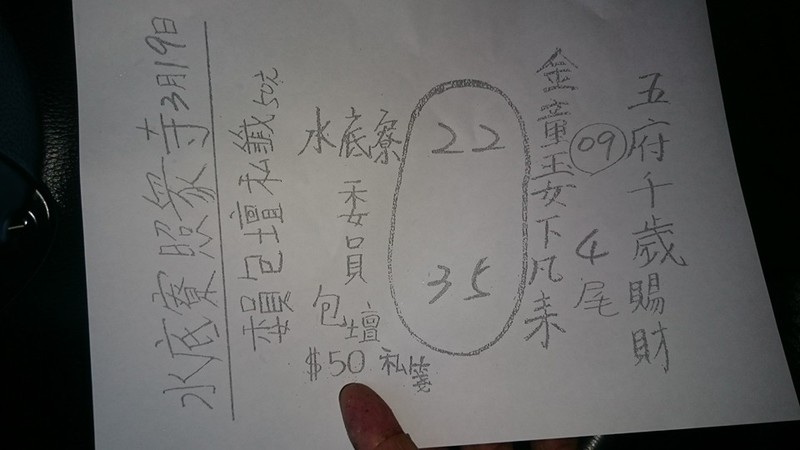 五府千歲賜財
09
4尾
金童玉女下凡來
22
35
水底寮
委員
包壇
$50 私簽
委員包壇私籤50元
水底寮照眾寺3月19日